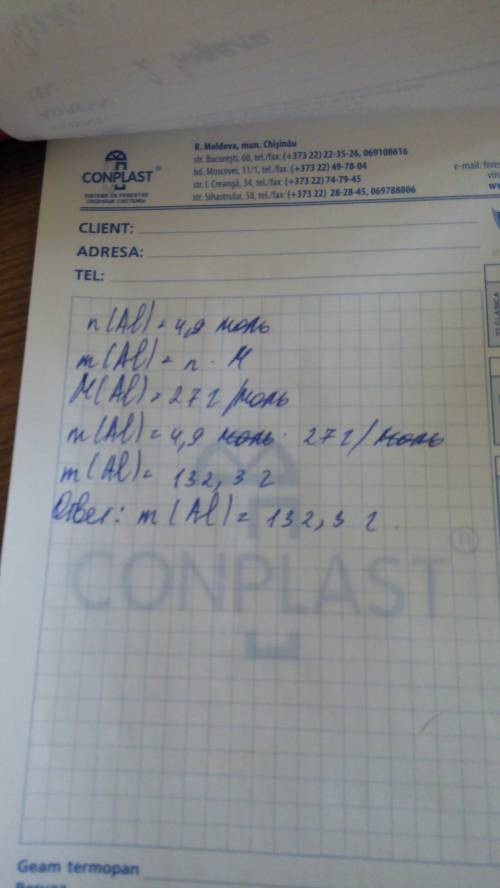 TEL
ADRESA:
CONPLAST®
SISTEME DE FERESTRE
ОКОННЫЕ СИСТЕМЫ
R. Moldova, mun. Chişinău
str. Bucureşti, 60, tel./fax: (+373 22) 22-35-26, 069108616
bd. Moscovei, 11/1, tel./fax: (+373 22) 49-78-04
str. I. Creangă, 34, tel./fax: (+373 22) 74-79-45
str. Sihastrului, 58, tel./fax: (+373 22) 28-28-45, 069788806
e-mail: fere
CLIENT:
ADRESA:
TEL:
n(Al) = 4,9 моль
m(Al) = n · M
M(Al) = 27 г/моль
m(Al) = 4,9 моль · 27 г/моль
m(Al) = 132,3 г
Ответ: m(Al) = 132,3 г.
CONPLAST®
Geam termopan